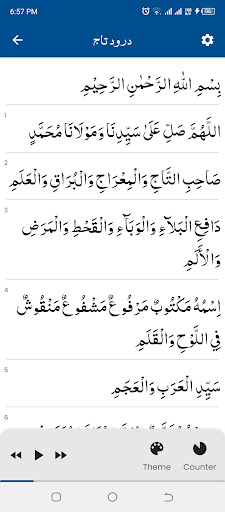 6:57 PM
درود تاج
بِسْمِ اللهِ الرَّحْمٰنِ الرَّحِيْمِ
1
اَللّٰهُمَّ صَلِّ عَلٰى سَيِّدِنَا وَمَوْلَانَا مُحَمَّدٍ
2
صَاحِبِ التَّاجِ وَالْمِعْرَاجِ وَالْبُرَاقِ وَالْعَلَمِ
3
دَافِعِ الْبَلَاءِ وَالْوَبَاءِ وَالْقَحْطِ وَالْمَرَضِ
وَالْاَلَمِ
4
اِسْمُهٗ مَكْتُوْبٌ مَرْفُوْعٌ مَشْفُوْعٌ مَنْقُوْشٌ
فِي اللَّوْحِ وَالْقَلَمِ
5
سَيِّدِ الْعَرَبِ وَالْعَجَمِ
6
Theme Counter